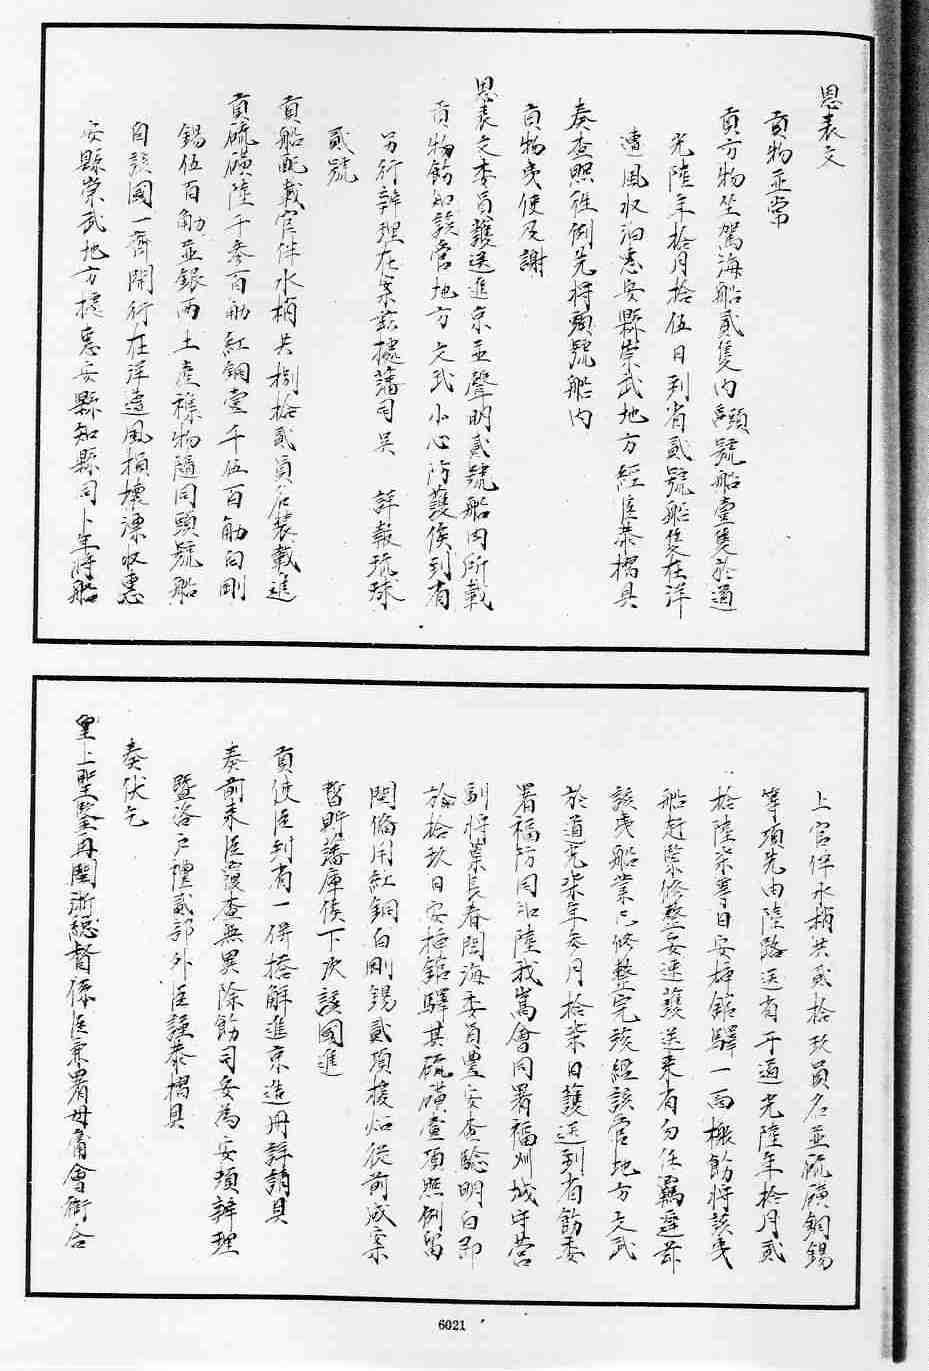 恩表文
貢物並常
貢方物坐駕海船貳隻內頭號船壹隻於道
光陸年拾月拾伍日到省貳號船隻在洋
遭風收泊惠安縣崇武地方經臣恭摺具
奏查照往例先將頭號船內
貢物夷使及謝
恩表文委員護送進京並聲明貳號船內所載
貢物飭知該管地方文武小心防護俟到有
另行辦理在案茲據藩司吳　詳報琉球
貳號
貢船配載官伴水梢共捌拾貳員名裝載進
貢硫磺陸千參百觔紅銅壹千伍百觔白剛
錫伍百觔並銀兩土產襍物隨同頭號船
自該國一齊開行在洋遭風損壞漂收惠
安縣崇武地方據惠安縣知縣同卜年將船
上官伴水梢共貳拾玖員名並硫磺銅錫
等項先由陸路送省于道光陸年拾月貳
拾陸柒等日安插館驛一面檄飭將該夷
船赶緊修整妥速護送來省勿任羈遲茲
該夷船業已修整完竣經該管地方文武
於道光柒年參月拾柒日護送到省飭委
署福防同知陸我嵩會同署福州城守營
副將葉長春閩海委員豊安查驗明白即
於拾玖日安插館驛其硫磺壹項照例留
閩備用紅銅白剛錫貳項援炤從前成案
暫貯藩庫俟下次該國進
貢使臣到省一併搭解進京造冊詳請具
奏前來臣覆查無異除飭司妥為安頓辦理
暨咨戶禮貳部外臣謹恭摺具
奏伏乞
皇上聖鑒再閩浙總督係臣兼署毋庸會銜合
6021